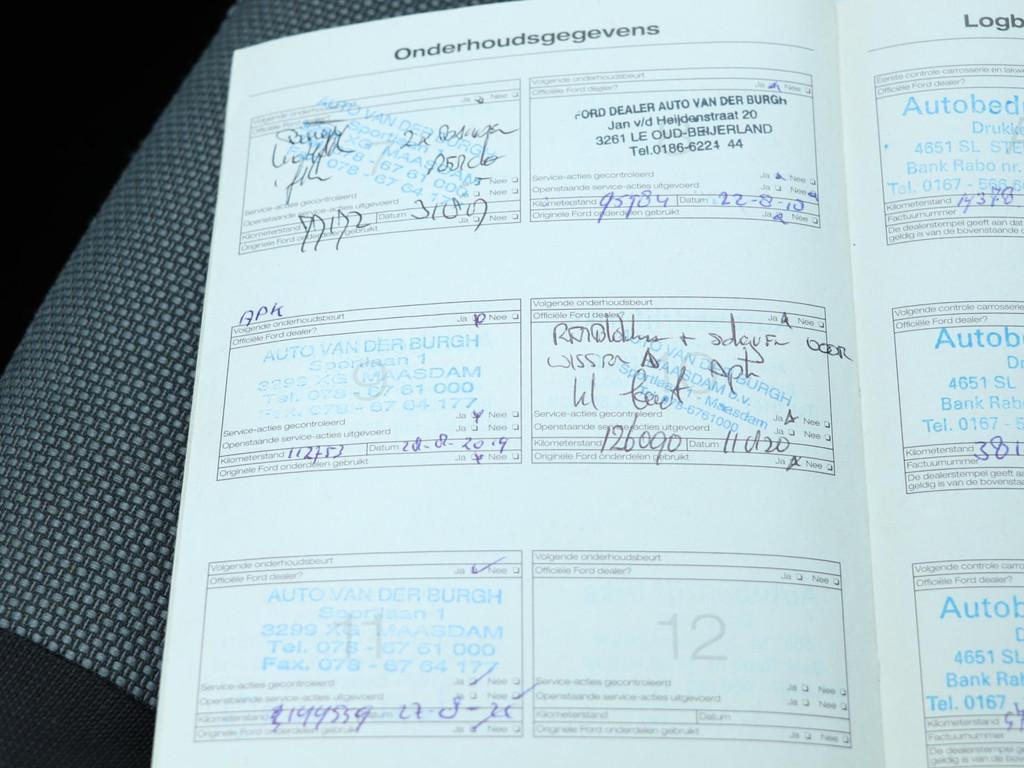 Onderhoudsgegevens
Volgende onderhoudsbeurt
Ja Nee
AUTO VAN DER BURGH
2x
Service-acties gecontroleerd
Ja Nee
Openstaande service-acties uitgevoerd
Ja Nee
Kilometerstand Datum
Originele Ford onderdelen gebruikt
Volgende onderhoudsbeurt
Officiële Ford dealer? Ja Nee
FORD DEALER AUTO VAN DER BURGH
Jan v/d Heijdenstraat 20
3261 LE OUD-BEIJERLAND
Tel.0186-6221 44
Service-acties gecontroleerd Ja Nee
Openstaande service-acties uitgevoerd Ja Nee
Kilometerstand 95784 Datum 22-8-18
Originele Ford onderdelen gebruikt Ja Nee
APK
Volgende onderhoudsbeurt
Officiële Ford dealer? Ja Nee
9
AUTO VAN DER BURGH
Sportlaan 1
3299 XG MAASDAM
Tel. 078 - 67 61 000
Fax. 078 - 67 64 177
Service-acties gecontroleerd Ja Nee
Openstaande service-acties uitgevoerd Ja Nee
Kilometerstand 112753 Datum 28-8-2019
Originele Ford onderdelen gebruikt Ja Nee
Volgende onderhoudsbeurt
Officiële Ford dealer? Ja Nee
WISSEN APK
kl beurt
VAN DER BURGH
MAASDAM b.v.
Sportlaan 1 - Maasdam
Tel. 078-6761000
Service-acties gecontroleerd Ja Nee
Openstaande service-acties uitgevoerd Ja Nee
Kilometerstand 126090 Datum
Originele Ford onderdelen gebruikt Ja Nee
Volgende onderhoudsbeurt
Officiële Ford dealer? Ja Nee
11
AUTO VAN DER BURGH
Sportlaan 1
3299 XG MAASDAM
Tel. 078 - 67 61 000
Fax. 078 - 67 64 177
Service-acties gecontroleerd Ja Nee
Openstaande service-acties uitgevoerd Ja Nee
Kilometerstand 144559 Datum
Originele Ford onderdelen gebruikt Ja Nee
Volgende onderhoudsbeurt
Officiële Ford dealer? Ja Nee
12
Service-acties gecontroleerd Ja Nee
Openstaande service-acties uitgevoerd Ja Nee
Kilometerstand Datum
Originele Ford onderdelen gebruikt Ja Nee
Logb
Eerste controle carrosserie en lakw
Officiële Ford dealer?
Autobed
Drukk
4651 SL STE
Bank Rabo nr.
Tel. 0167 -
Kilometerstand 19378
Factuurnummer
De dealerstempel geeft aan dat
geldig is van de bovenstaande
Volgende controle carrosserie
Officiële Ford dealer?
Autob
4651 SL
Bank Rab
Tel. 0167 - 5
Kilometerstand 381
Factuurnummer
De dealerstempel geeft aan
geldig is van de bovensta
Volgende controle carro
Officiële Ford dealer?
Autob
4651 SL
Bank Ra
Tel. 0167
Kilometerstand
Factuurnummer
De dealerstempel geeft
geldig is van de boven